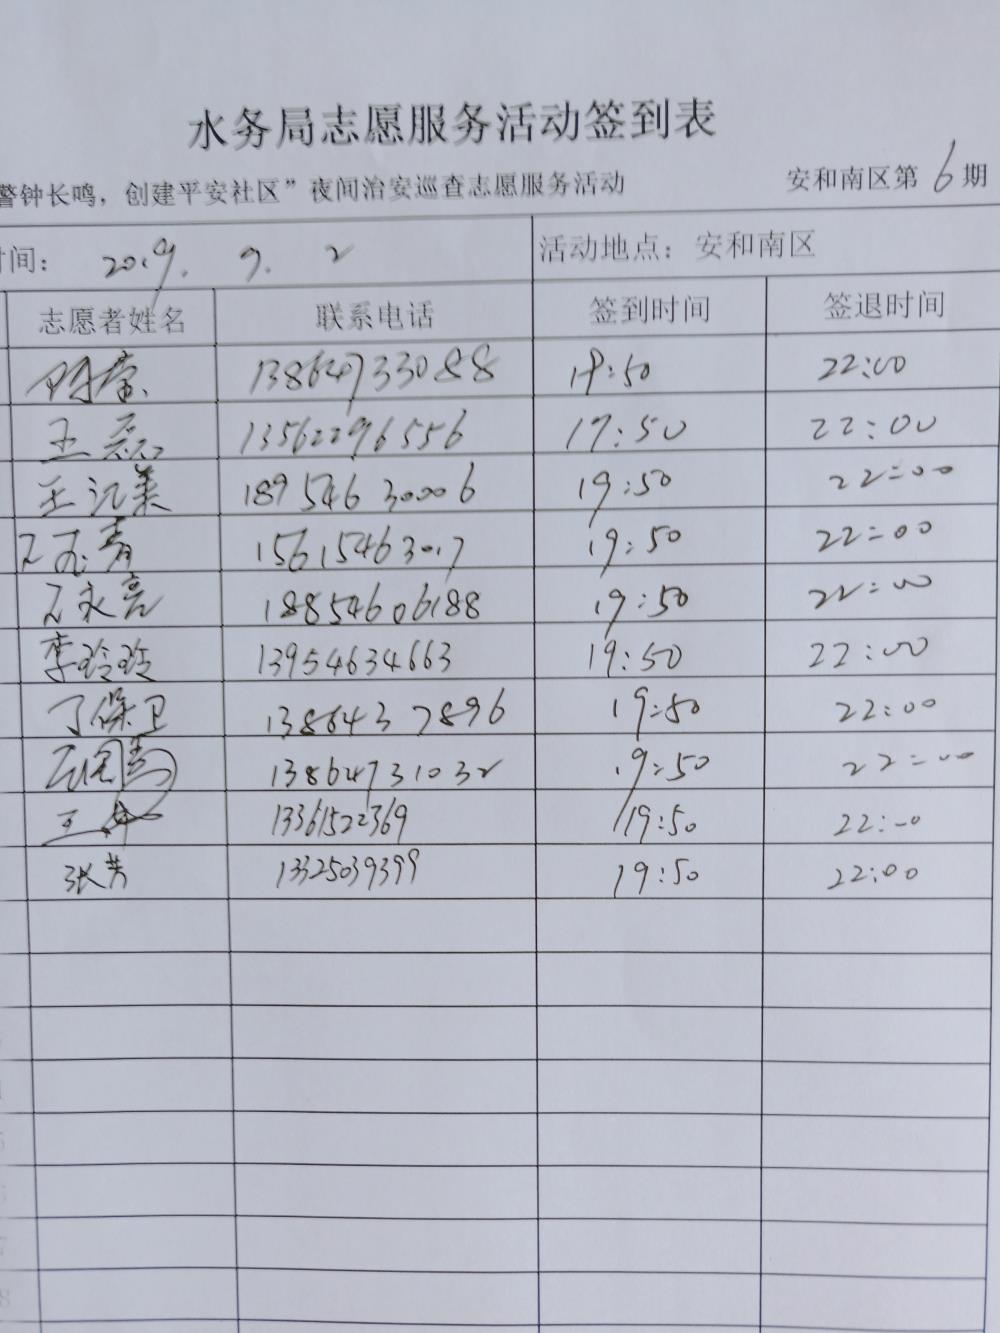 水务局志愿服务活动签到表
警钟长鸣，创建平安社区”夜间治安巡查志愿服务活动 安和南区第6期
时间： 2019. 9. 2 活动地点：安和南区
志愿者姓名 联系电话 签到时间 签退时间
13864733088 19:50 22:00
王磊 13562296556 19:50 22:00
王江美 18954630006 19:50 22:00
15615463017 19:50 22:00
永亮 18854606188 19:50 22:00
李玲玲 13954634663 19:50 22:00
丁保卫 1386437896 19:50 22:00
13864731032 19:50 22:00
王 13361522369 19:50 22:00
张芳 13325039399 19:50 22:00